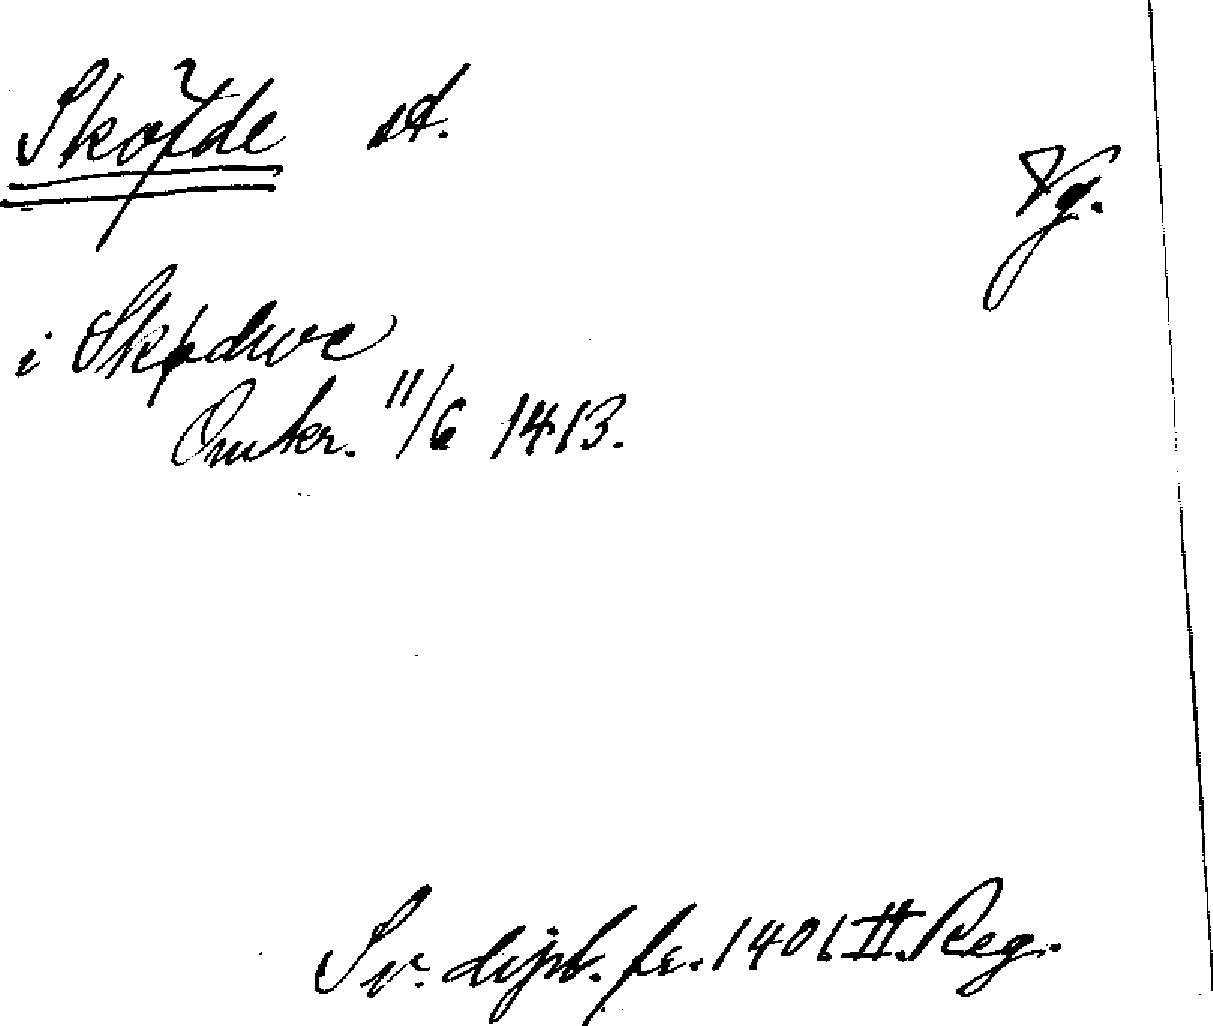 Skövde st.
Vg.
i Skødwe
Omkr. 11/6 1413.
Sv. dipl. fr. 1401 II. Reg.